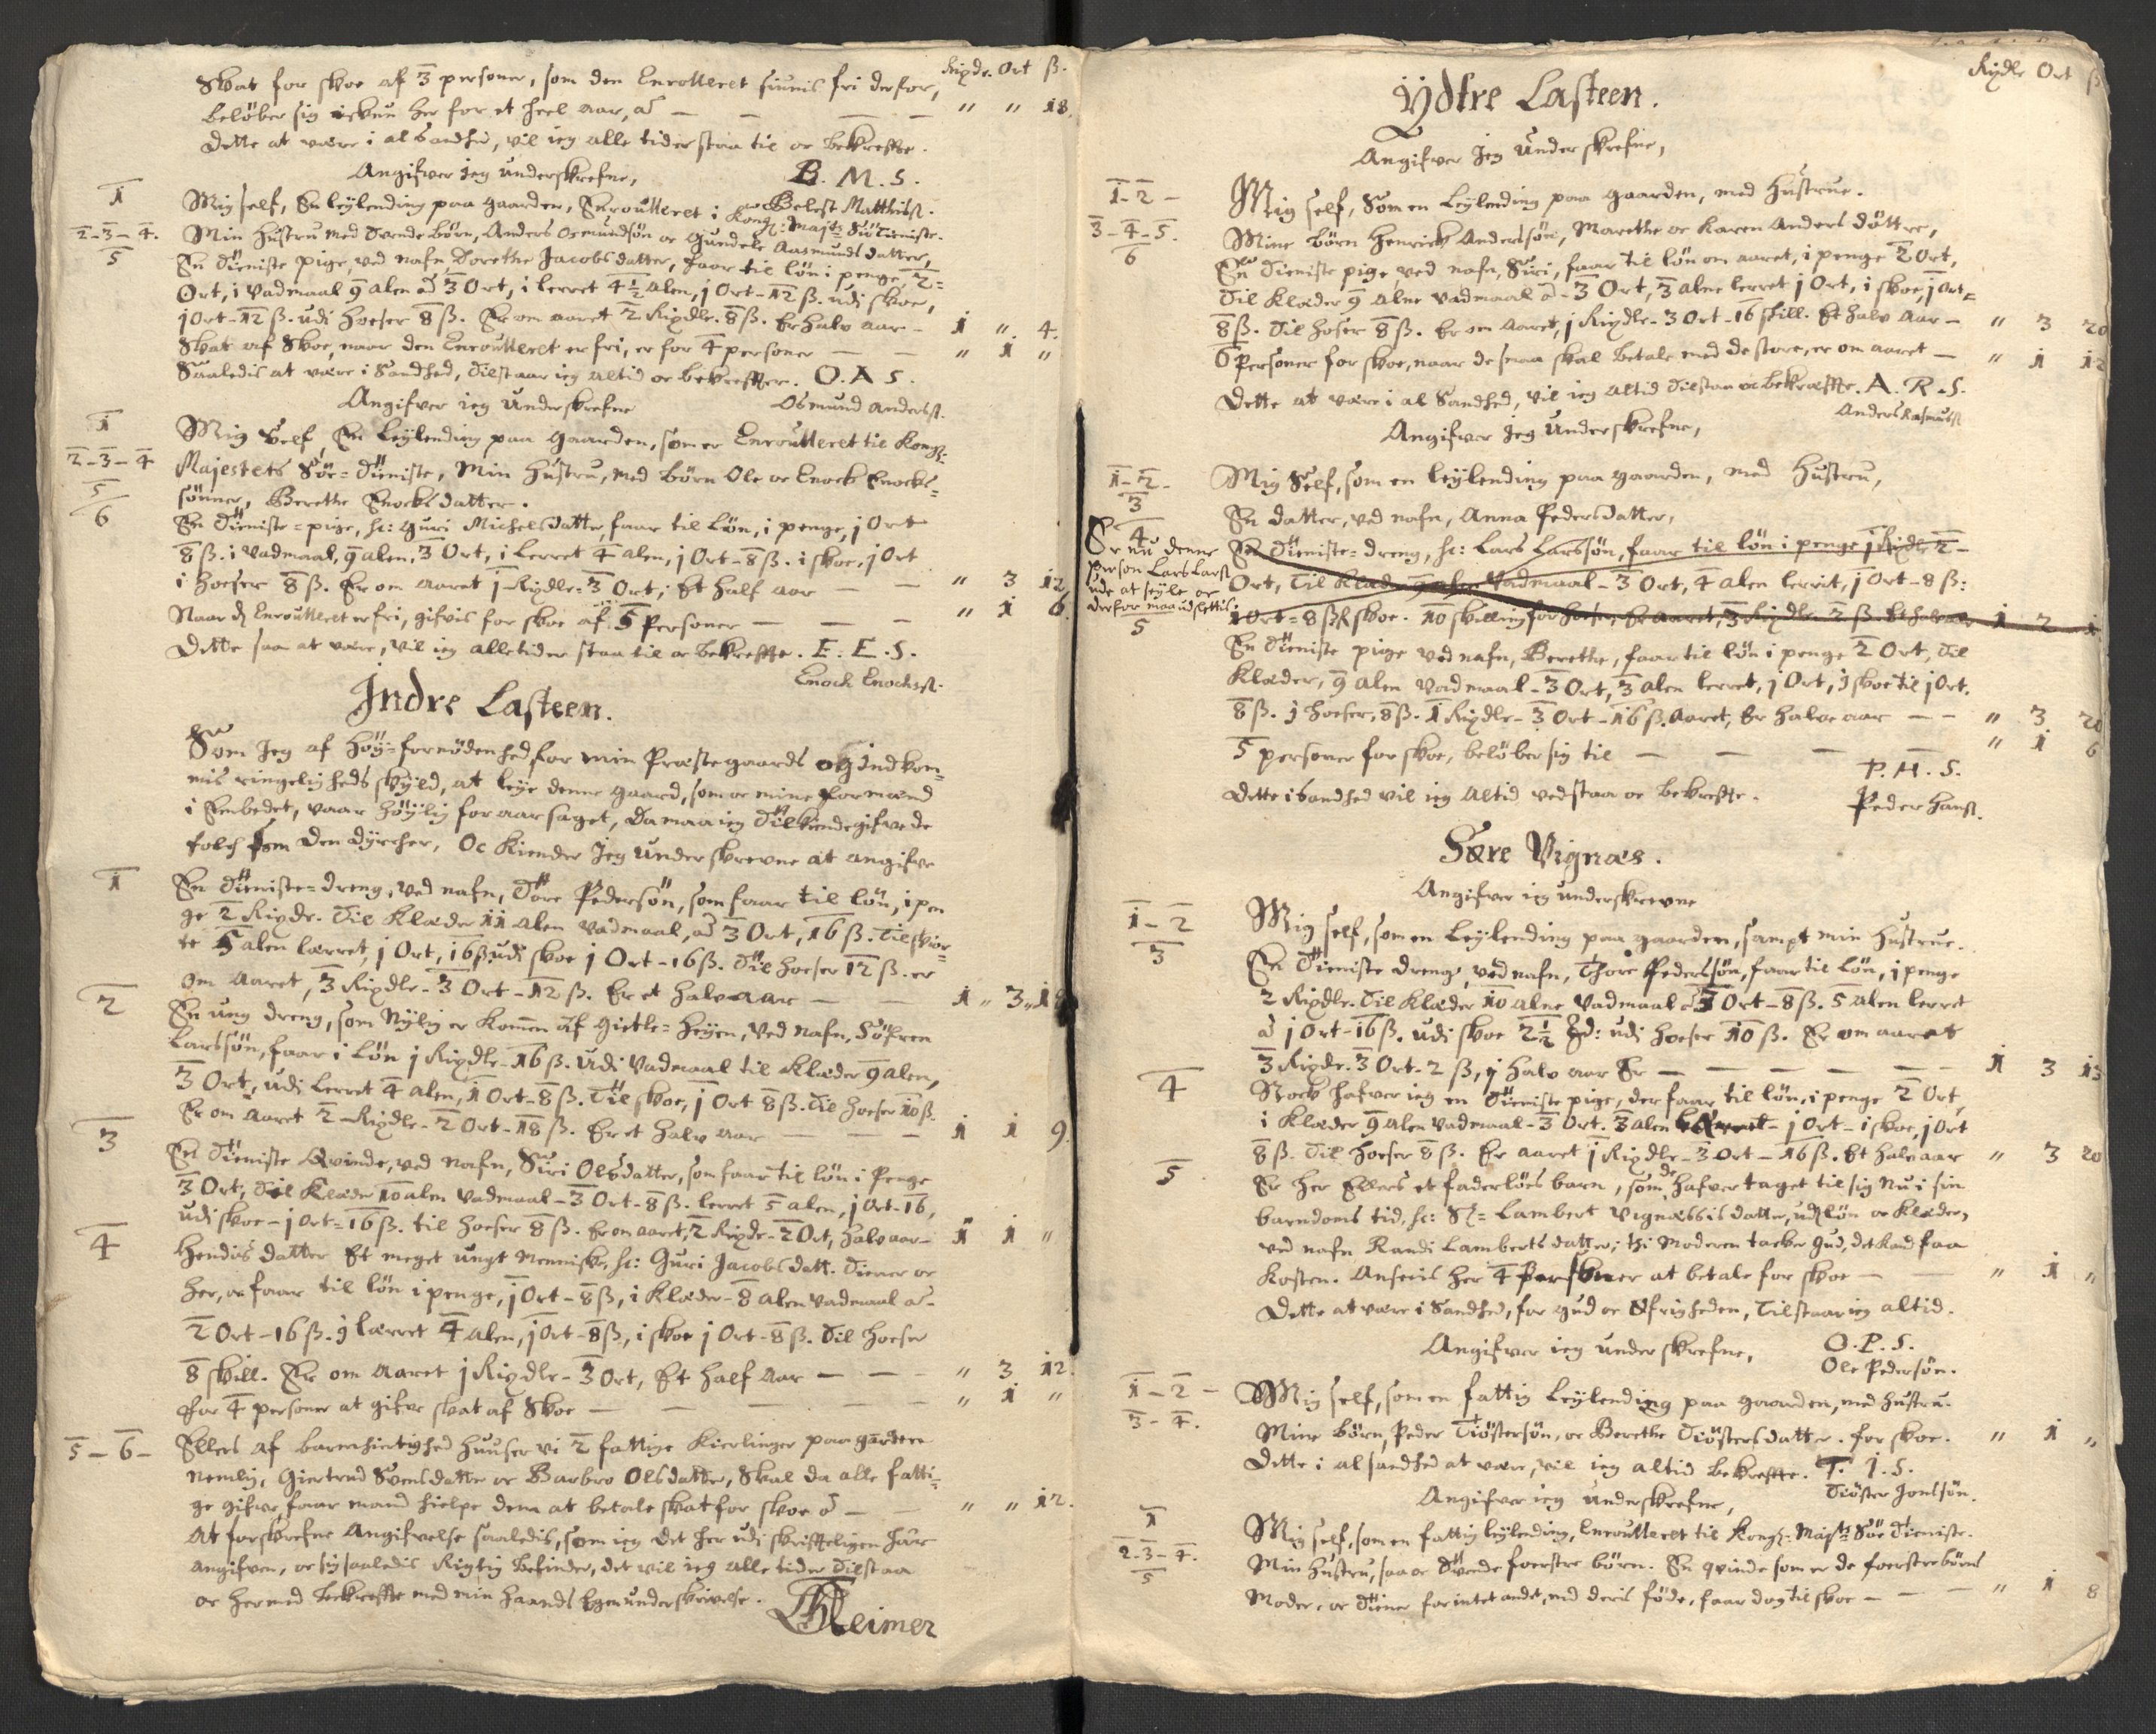 Rixdr. Ort ß.
Skat for skoe af 3 personer, som den Enrotteret siunis fri derfor,
beløber sig ickun her for et heel aar, á — — — — " " 18.
Dette at være i al Sandhed, vil ieg alle tider staa til oc bekreffte.
B. M. S.
Belest Matthisß.
Angifver ieg underskrefne,
1 Mig self, En leylending paa gaarden, Enroulleret i Kong: Majts Söe dieniste.
2-3-4. Min Hustru med Tvende börn, Anders Osmundsön oc Gundele Aasmunds datter,
5 En dieniste pige, ved nafn Dorethe Jacobs datter, faar til lön i penge 2
Ort, i Vadmaal 9 alen á 3 Ort, i lerret 4½ alen, j Ort-12 ß. udi skoe,
j Ort-12 ß. udi hoeser 8 ß. Er om aaret 2 Rixdlr. 8 ß. Er halv aar — 1 " 4.
Skat af Skoe, naar den Enroulleret er fri, er for 4 personer — — " 1 "
Saaledis at være i Sandhed, Tilstaar ieg altid oc bekreffter. O. A. S.
Osmund Andersß.
Angifver ieg underskrefne
1 Mig Self, En leylending paa gaarden, som er Enroulleret til Kong:
2-3-4 Majestets Söe-dieniste, Min Hustru, med börn Ole oc Enock Enocks-
5 sönner, Berethe Enocks datter.
6 En dieniste-pige, h: Guri Michels datter, faar til lön, i penge, j Ort
8 ß. i Vadmaal, 9 alen, 3 Ort, i lerret 4 alen, j Ort-8 ß. i skoe, j Ort
i hoeser 8 ß. Er om aaret 1 Rixdlr-3 Ort, Et half aar — — " 3 12
Naar den Enroulleret er fri, gifvis for skoe af 5 Personer — — — " 1 6.
Dette saa at være, vil ieg alletider staa til oc bekreffte. E. E. S.
Enoch Enochsß.
Indre Lasteen.
Som Jeg af Höy-fornödenhed, for min Præstegaards og indkom-
mis ringeligheds skyld, at leye denne gaard, som oc mine formænd
i Embedet, vaar höylig foraarsaget, Da maa ieg Tilkiendegifve de
folch som den dyrcher, Oc Kiender Jeg underskrevne at angifve
1 En dieniste-dreng, ved nafn, Tore Pedersön, som faar til lön, i pen
ge 2 Rixdr. Til Klæder 11 alen Vadmaal, á 3 Ort, 16 ß. Til skior-
te 5 alen lærret, j Ort, 16 ß, udi skoe j Ort-16 ß. Til hoeser 12 ß. er
om Aaret, 3 Rixdlr-3 Ort-12 ß. Er et halv aar — — 1 " 3 " 18
2 En ung dreng, som Nylig er Kommen af Gietle-Heyen, ved nafn, Söfren
Larssön, faar i lön j Rixdlr-16 ß. Udi Vadmaal til Klæder 9 alen,
3 Ort, udi lerret 4 alen, 1 Ort-8 ß. Til skoe, j Ort 8 ß. Til hoeser 10 ß.
Er om Aaret 2 Rixdlr-2 Ort-18 ß. Er et halv aar — — — 1 1 9.
3 En dieniste Qvinde, ved nafn, Siri Olsdatter, som faar til lön i Penge
3 Ort, Til Klæder 10 alen Vadmaal-3 Ort-8 ß. lerret 5 alen, j Ort-16,
udi skoe-j Ort-16 ß. til hoeser 8 ß. Er om aaret, 2 Rixdr-2 Ort, halv aar — 1 1 "
4 Hendis datter Et meget ungt Menniske, h: Guri Jacobs datt. Tiener oc
her, oc faar til lön i penge, j Ort-8 ß, i Klæder-8 alen Vadmaal á-
2 Ort-16 ß. j lærret 4 alen, j Ort-8 ß, i skoe j Ort-8 ß. Til hoeser
8 skill. Er om Aaret j Rixdlr-3 Ort, Et half Aar — — — " 3 12.
for 4 personer at gifve skat af Skoe — — — — — " 1 "
5-6- Ellers af barmhiertighed huuser vi 2 fattige Kierlinger paa gaarden
Nemlig, Giertrud Svensdatter oc Barbro Olsdatter, Skal da alle fatti-
ge gifve faar mand hielpe dem at betale skat for skoe á — — " " 12.
At forskrefne Angifvelse saaledis, som ieg det her udi skriffteligen haver
angifven, oc sig saaledis Rigtig befinder, det vil ieg alle tider Tilstaa
oc hermed bekreffte med min haands Egen underskrivelse.
Rixdlr Ort ß
Ydtre Lasteen.
Angifver Jeg underskrefne,
1-2- Mig self, Som en Leylending paa gaarden, med Hustrue.
3-4-5. Mine börn Henrich Anderssön, Marethe oc Karen Anders döttre,
6 En dieniste pige, ved nafn, Siri, faar til lön om aaret, i penge 2 Ort,
Til Klæder 9 alne Vadmaal á-3 Ort, 3 alne lerret j Ort, i skoe, j Ort-
8 ß. Til hoser 8 ß. Er om Aaret, j Rixdlr-3 Ort-16 skill. Et halv Aar — " 3 20
6 Personer for skoe, naar de smaa skal betale med de store, er om aaret — " 1 12
Dette at være i al Sandhed, vil ieg altid Tilstaa oc bekreffte. A. R. S.
Anders Rasmusß
Angifver Jeg underskrefne,
1-2- Mig Self, som en leylending paa gaarden, med Hustru,
3 En datter, ved nafn, Anna Pedersdatter,
4 En dieniste-dreng, h: Lars Larssön, faar til lön i penge 1 Rixdlr 2-
Er nu denne
person Lars Larsß
ude at seyle oc
derfor maa udslettis.
Ort, Til Klæder 9 alen Vadmaal-3 Ort, 4 alen lerrit, j Ort-8 ß:
1 Ort-8 ß, skoe. 10 skilling for hoeser, Er aaret, 3 Rixdlr 2 ß. Et halv aar 1 2 1
5 En dieniste pige ved nafn, Berethe, faar til lön i penge 2 Ort, Til
Klæder, 9 alen Vadmaal-3 Ort, 3 alen lerret, j Ort, i skoe til j Ort.
8 ß. j hoeser, 8 ß. 1 Rixdlr-3 Ort-16 ß. Aaret, Er halve aar — — " 3 20
5 personer for skoe, beløber sig til — — — — " 1 6
P. H. S.
Dette i Sandhed vil ieg Altid vedstaa oc bekreffte.
Peder Hansß.
Søre Vignæs.
Angifver ieg underskrevne
1-2 Mig self, som en Leylending paa gaarden, sampt min Hustrue.
3 En Dieniste dreng, ved nafn, Thore Pederssön, faar til lön, i penge
2 Rixdlr. Til Klæder 10 alne Vadmaal á 3 Ort-8 ß. 5 alen lerret
á j Ort-16 ß. udi skoe 2½ : udi hoeser 10 ß. Er om aaret
3 Rixdr. 3 Ort-2 ß, j halv aar Er — — — — — 1 3 13
4 Noch hafver ieg en Dieniste pige, der faar til lön, i penge 2 Ort,
i Klæder 9 alen Vadmaal-3 Ort. 3 alen lerret-j Ort-i skoe, j Ort
8 ß. Til Hoeser 8 ß. Er aaret j Rixdlr-3 Ort-16 ß. Et halv aar " 3 20
5 Er her Ellers et faderlöes barn, som de hafver taget til sig Nu i sin
barndoms tid, h: Sl= Lambert Vignæssis datter, uden lön oc Klæder,
ved nafn Randi Lamberts datter; thi Moderen tacker Gud, det Kand faa
Kosten. Ansees her 4 Personer at betale for skoe — — " 1 "
Dette at være i Sandhed, for Gud oc Öfrigheden, Tilstaar ieg altid.
O. P. S.
Ole Pedersön.
Angifver ieg underskrefne,
1-2- Mig self, som en fattig Leylending paa gaarden, med Hustru.
3-4. Mine börn, Peder Tiöstersön, oc Berethe Tiöstersdatter. for skoe. " 1 "
Dette i al sandhed at være, vil ieg altid bekreffte. T. J. S.
Tiöster Jonssön.
Angifver ieg underskrefne,
1 Mig self, som en fattig leylending, Enroulleret til Kong: Majts Söe Tieniste.
2-3-4. Min Hustru, saa oc Tvende foerstre börn. En qvinde som er de foerstre börns
5 Moder, oc Tiener for intet andet, end deris föde, faar dog til skoe — — — " 1 8